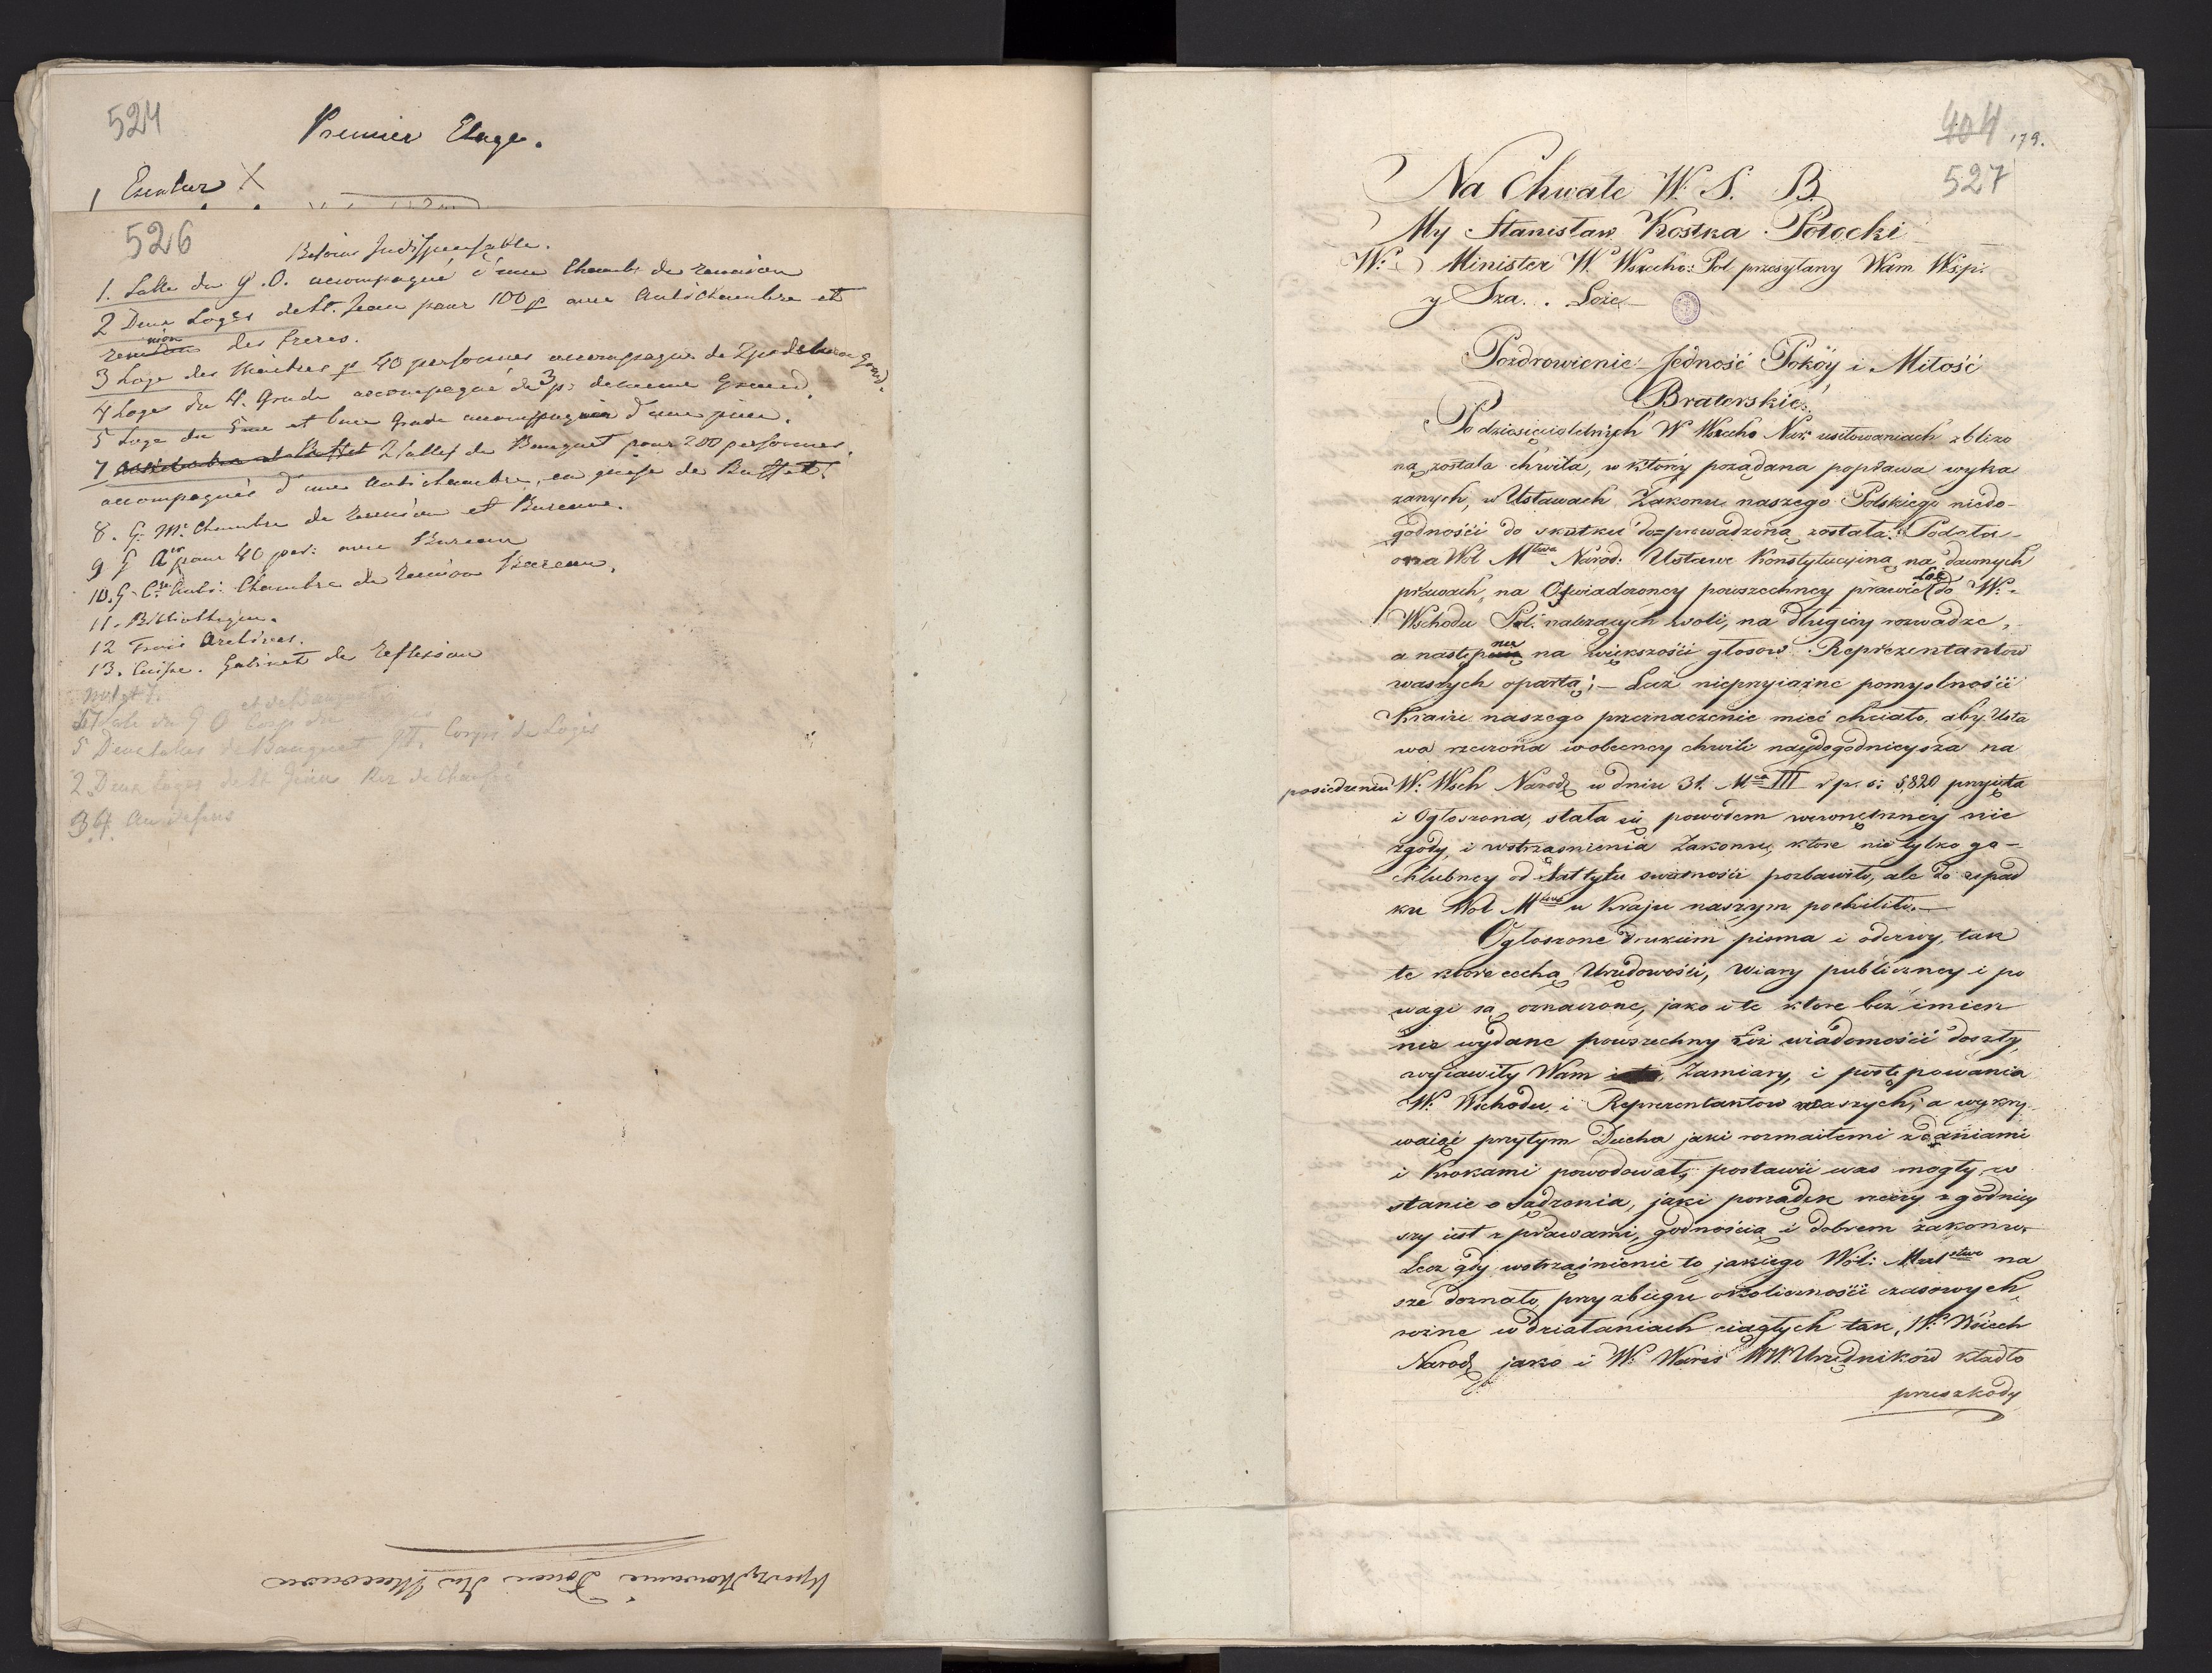 524
Premier Etage.
1 Escalier X
526
Besoins Indispensable.
1. Salle du G. O. accompagné d'une Chambr de reunion
2 Deux Loges de St. Jean pour 100 p avec Antichambre et
reunion des freres.
3 Loge des Maitres p 40 personnes accompagné de 2 p de
4 Loges du 4. Grade accompegné de 3 p: de meme Grand.
5 Loge du 5me et 6me Grade accompagnée d'une piece.
7 2 Salles de Banquet pour 200 personnes
accompagnés d'une Antichambre, en guise de Buffet.
8. G. M. Chambre de Reunion et Bureau.
9 G pour 40 per: avec Bureau
10. G. Anti: Chambre de Reunion Bureau.
11. Bibliotheque.
12 Trois Archives.
13. Cuisse. Gabinet de reflexion
et de Banquets
Sale du G O Corps de
5 Deux Sales de Banquet Corps de Logis
2. Deux Loges de St Jean Rez de Chaussé
3 4 Au desus
Uporządkowanie Domu dla Masonow
404 179.
527
Na Chwałe W. S. B.
My Stanisław Kostka Potocki
W: Minister W. Wszecho: Pol przesyłany Wam Wsp.
y Sza. . Loże
Pozdrowienie Jedność Pokóy i Miłość
Braterskie.
Po dziesięcioletnych W Wszecho Nar: usiłowaniach zbliżo
ną została chwila, w który pożądana poprawa wyka
zanych, w Ustawach Zakonu naszego Polskiego niedo-
godności do skutku doprowadzoną została. Podała
ona Wol Mtwu Narod: Ustawe Konstytucyiną na dawnych
prawach, na Oświadczoney powszechney prawie Loż do W:
Wschodu Pol. należących woli, na długiey rozwadze,
a następnie na większości głosow Reprezentantow
waszych opartą; – Lecz nieprzyiazne pomyslności
Kraiu naszego przeznaczenie mieć chciało, aby Usta
wa rzeczona w obecney chwili naydogodnieysza na
posiedzeniu W: Wsch Narod w dniu 31. Mca III r p. s: 5820 przyięta
i Ogłoszona, stała się powodem wewnętrzney nie
zgody, i wstrząsnienia Zakonu, ktore nie tylko go
chlubney od lat tylu swietności pozbawiło, ale do upad
ku Wol Mtwo w Kraju naszym pochiliło. –
Ogłoszone drukiem pisma i odezwy, tak
te ktore cechą Urzędowości, Wiary publiczney i po
wagi są oznaczone, jako i te ktore bez imien
nie wydane powszechny Loż wiadomości doszły,
wyiawiły Wam Zamiary, i postępowania
W: Wschodu i Reprezentantow waszych; a wykry
waiąc przytym Ducha jaki rozmaitemi zdaniami
i Krokami powodował, postawić was mogły w
stanie osądzenia, jaki porządek rzeczy zgodniey
szy iest z prawami, godnością i dobrem zakonu.
Lecz gdy wstrząśnienie to jakiego Wol: Mulstwo na
sze doznało, przy zbiegu okoliczności czasowych
rożne w działaniach ciągłych tak, W: Wschch
Narod jako i W: Warsz WW. Urzędników kładło
przeszkody